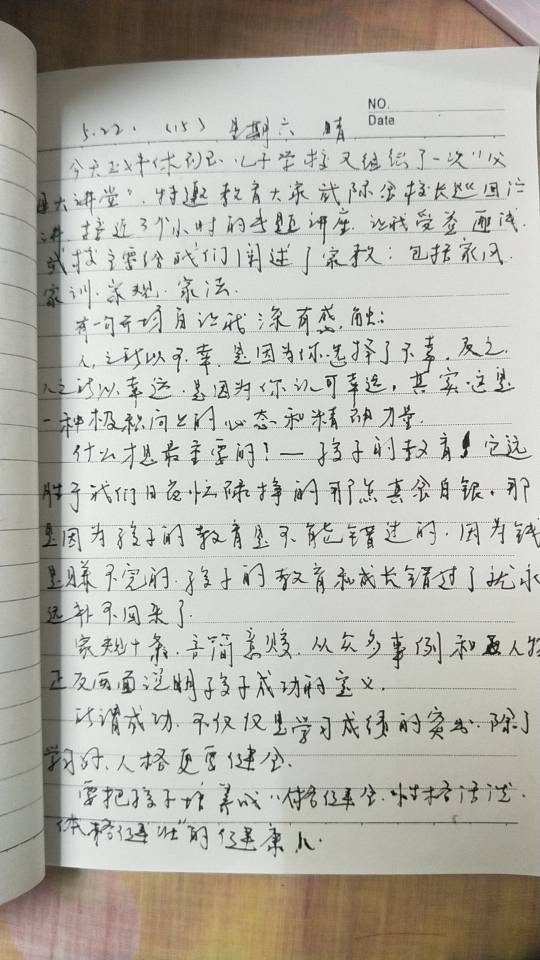 NO.
Date
5.22. (15) 星期六 晴
今天正式休到已 儿子学校又组织了一次"父
母大讲堂",特邀教育大家武际金校长巡回演
讲,接近3个小时的专题讲座,让我受益匪浅.
武校主要给我们阐述了家教:包括家风.
家训.家规.家法.
有一句开场白让我深有感触:
人之所以不幸,是因为你选择了不幸,反之.
人之所以幸运,是因为你认可幸运,其实这是
一种极积向上的心态和精砷力量.
什么才是最重要的?—孩子的教育!它远
胜于我们日夜忙碌挣的那点真金白银.那
是因为孩子的教育是不能错过的.因为钱
是赚不完的.孩子的教育和成长错过了就永
远补不回来了.
家规十条,言简意赅,从众多事例和人物
正反两面说明孩子成功的定义.
所谓成功,不仅仅是学习成绩的突出.除了
学习好,人格更要健全.
要把孩子培养成"人格健全.性格活泼.
体格健壮"的健康儿.